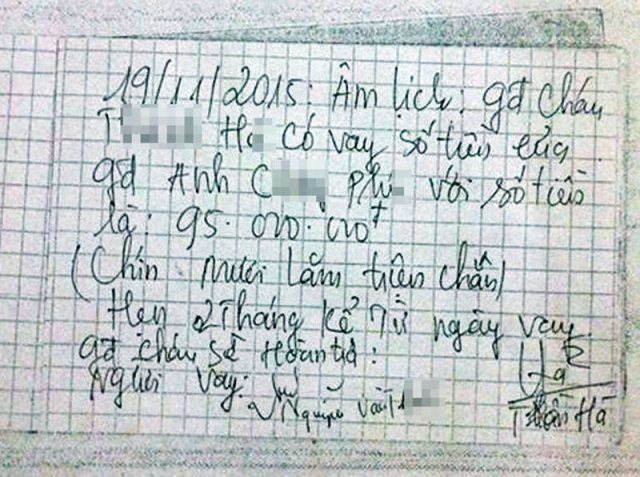 19/11/2015: Âm lịch: gđ cháu
T Hà có vay số tiền của
gđ Anh C Ph với số tiền
là: 95.000.000đ
(Chín mươi lăm triệu chẵn)
Hẹn 2 Tháng kể Từ ngày vay.
gđ cháu sẽ Hoàn trả:
Người vay:
Nguyễn văn T
Hà
Hà